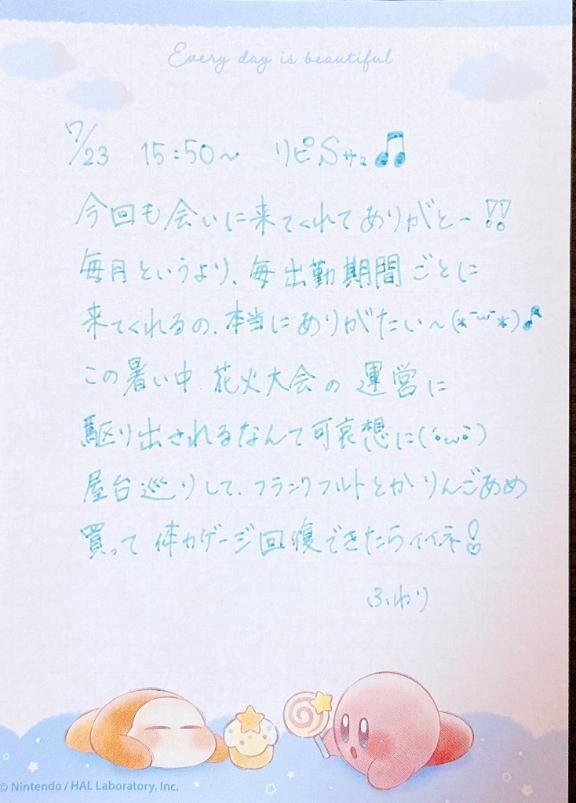 Every day is beautiful
7/23 15:50～ リピSサマ♫
今回も会いに来てくれてありがと～!!
毎月というより、毎出勤期間ごとに
来てくれるの、本当にありがたい～(*˘ω˘*)♪
この暑い中 花火大会の運営に
駆り出されるなんて可哀想に(´・ω・`)
屋台巡りして、フランクフルトとかりんごあめ
買って体力ゲージ回復できたらイイネ!
ふわり
© Nintendo / HAL Laboratory, Inc.